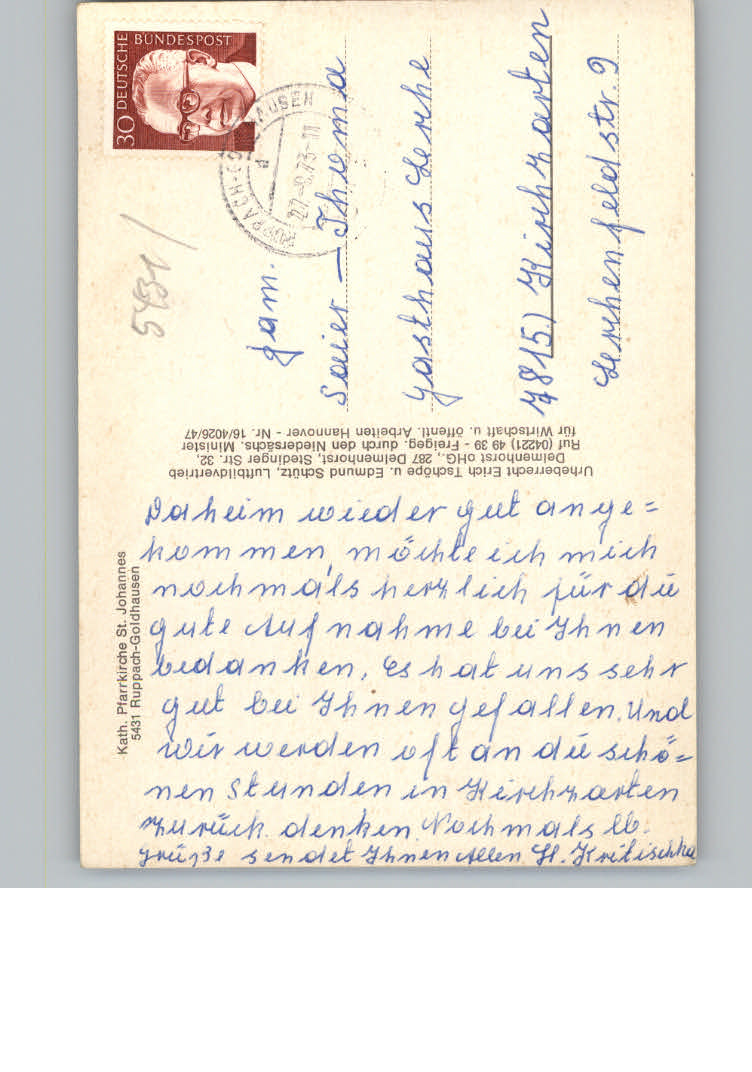 Kath. Pfarrkirche St. Johannes
5431 Ruppach-Goldhausen
Daheim wieder gut ange=
kommen, möchte ich mich
nochmals herzlich für die
gute Aufnahme bei Ihnen
bedanken. Es hat uns sehr
gut bei Ihnen gefallen. Und
wir werden oft an die schö=
nen Stunden in Kirchzarten
zurück denken. Nochmals lb.
Grüße sendet Ihnen Allen H.
Urheberrecht Erich Tschöpe u. Edmund Schütz, Luftbildvertrieb
Delmenhorst oHG., 287 Delmenhorst, Stedinger Str. 32,
Ruf (04221) 49 39 - Freigeg. durch den Niedersächs. Minister
für Wirtschaft u. öffentl. Arbeiten Hannover - Nr. 16/4026/47
5431
30 DEUTSCHE BUNDESPOST
Fam.
Saier - Thoma
Gasthaus Lerche
7815) Kirchzarten
Lerchenfeldstr. 9